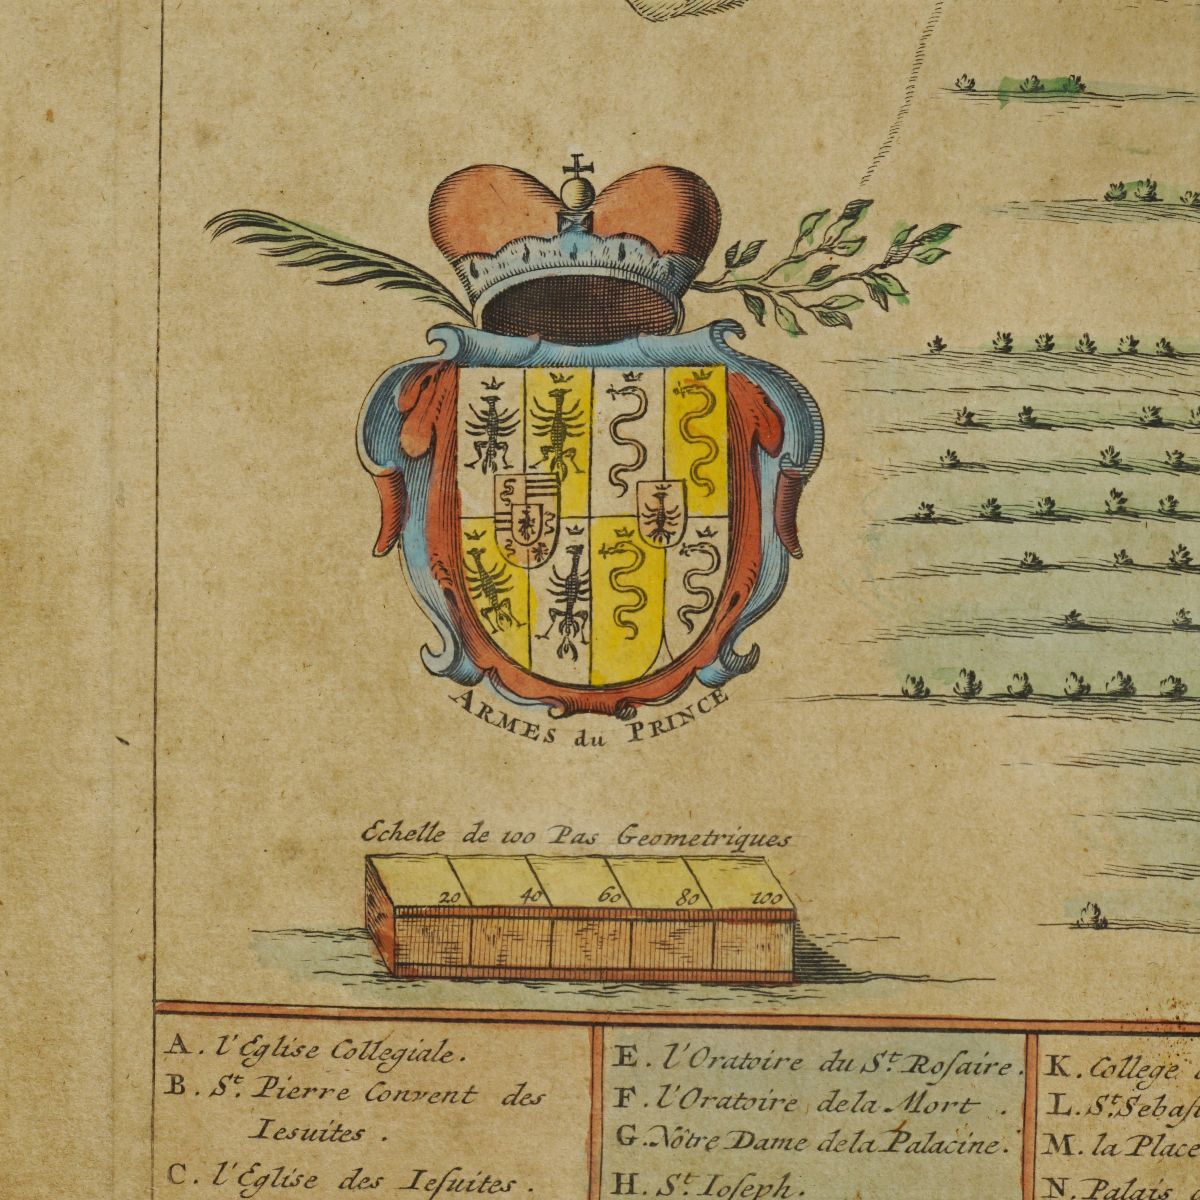 ARMES du PRINCE
Echelle de 100 Pas Geometriques
20 40 60 80 100
A. l'Eglise Collegiale.
B. St. Pierre Convent des
Iesuites.
C. l'Eglise des Iesuites.
E. l'Oratoire du St. Rosaire.
F. l'Oratoire dela Mort.
G. Nôtre Dame dela Palacine.
H. St. Ioseph.
K. College
L. St. Sebast
M. la Place
N. Palais